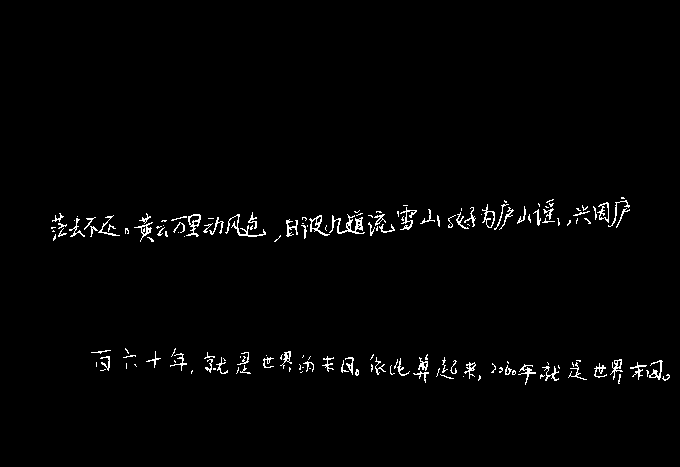 茫去不还。黄云万里动风色,白波九道流雪山。好为庐山谣,兴因庐
百六十年,就是世界的末日。依此算起来,2060年就是世界末日。